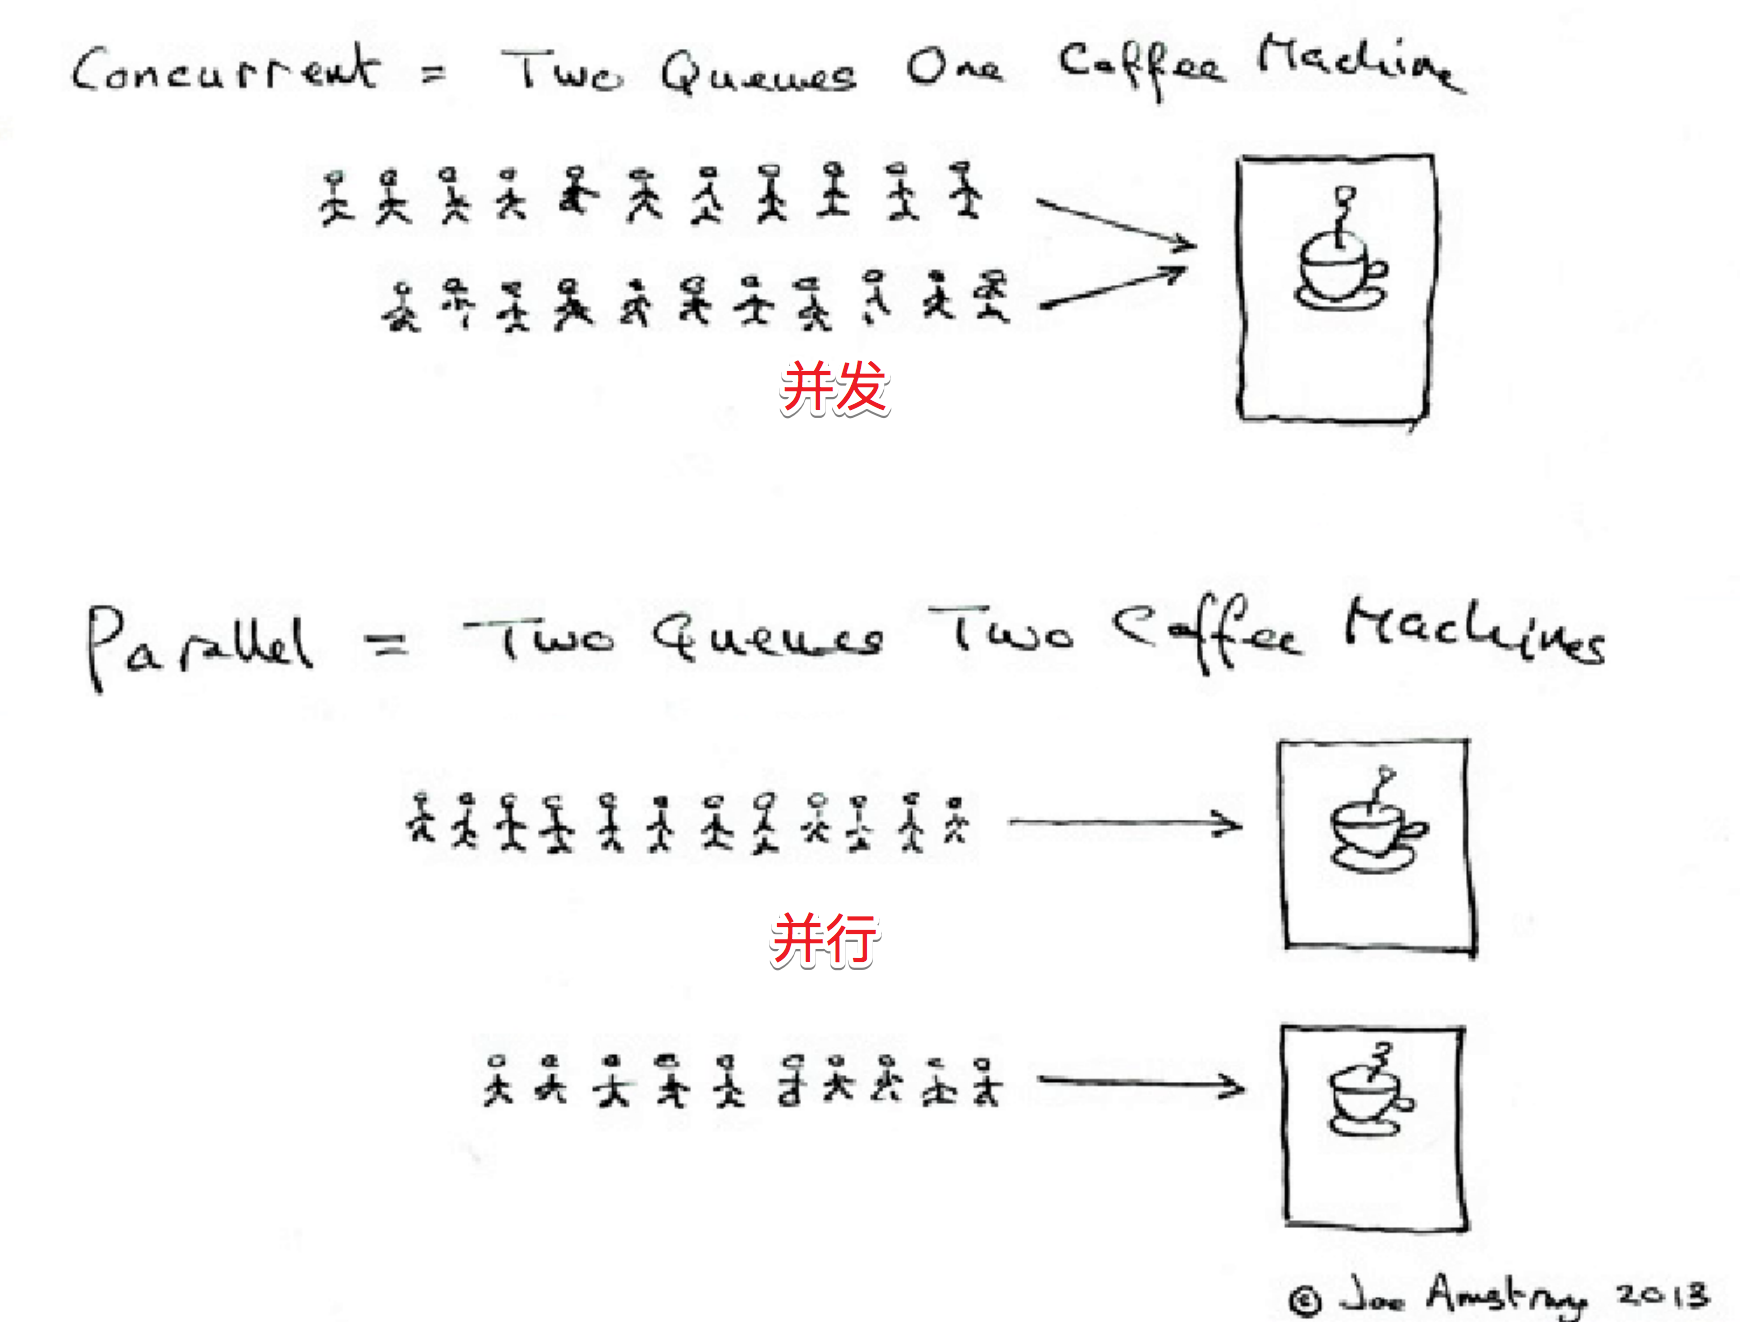 Concurrent = Two Queues One Coffee Machine
并发
Parallel = Two Queues Two Coffee Machines
并行
© Joe Armstrong 2013